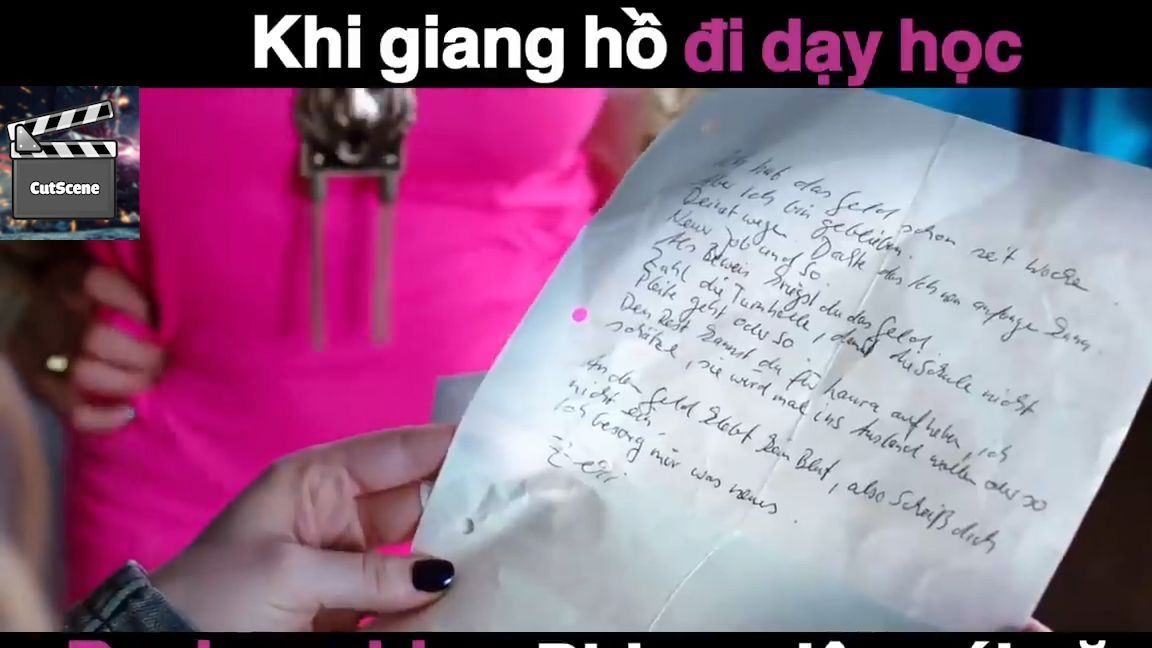 Khi giang hồ đi dạy học
CutScene
Ich hab das Geld schon seit Wochen.
Aber ich bin geblieben.
Deinetwegen. Dachte das ich was anfangen kann.
Neuer Job und so.
Als Beweis kriegst du das Geld.
Zahl die Turnhalle, damit die Schule nicht
Pleite geht oder so.
Den Rest kannst du für Laura aufheben, ich
schätze, sie wird mal ins Ausland wollen oder so
An dem Geld klebt kein Blut, also scheiß dich
nicht ein.
Ich besorg mir was neues.